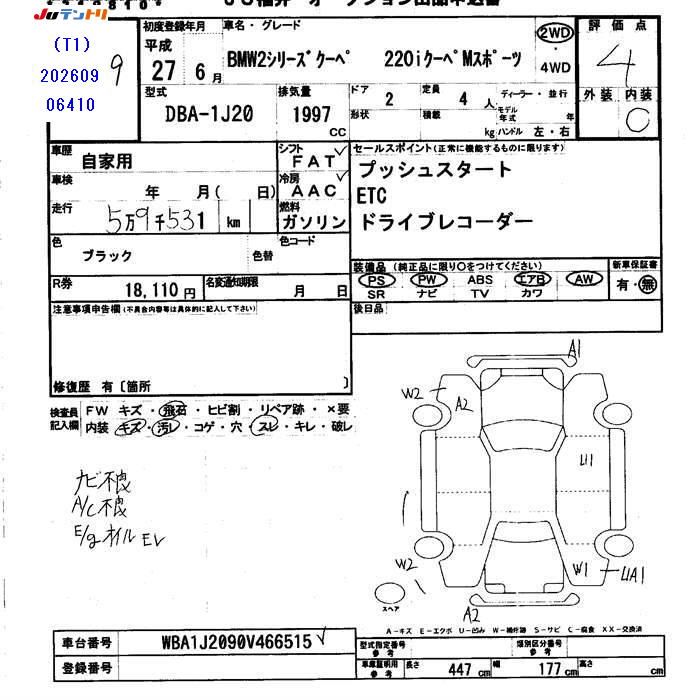 JUテントリ
(T1)
202609
06410
9
初度登録年月
平成
27 6月
車名・グレード
BMW2シリーズクーペ 220iクーペMスポーツ
2WD
・
4WD
評価点
4
外装 内装
C
型式
DBA-1J20
排気量
1997
CC
ドア
2
定員
4 人
ディーラー・並行
モデル年式 年
形状
積載 kg
ハンドル 左・右
車歴
自家用
シフト
FAT
車検
年 月( 日)
冷房
AAC
走行
5万9千531 km
燃料
ガソリン
セールスポイント(正常に機能するものに限ります)
プッシュスタート
ETC
ドライブレコーダー
色
ブラック
色替
色コード
装備品 (純正品に限り○をつけてください)
PS PW ABS エアB AW
SR ナビ TV カワ
新車保証書
有・無
R券
18,110円
名変通知期限
月 日
後日品
注意事項申告欄(不具合内容等は具体的に記入して下さい)
修復歴 有〔箇所 〕
検査員
記入欄
FW キズ・飛石・ヒビ割・リペア跡・×要
内装 キズ・汚レ・コゲ・穴・スレ・キレ・破レ
ナビ不良
A/C不良
E/gオイル
A1
W2
A2
U1
W2
W1
UA1
A2
スペア
A-キズ E-エクボ U-凹み W-補修跡 S-サビ C-腐食 XX-交換済
車台番号
WBA1J2090V466515
登録番号
型式指定番号
参考
類別区分番号
参考
車庫証明用
参考
長さ 447 cm
幅 177 cm
高さ cm